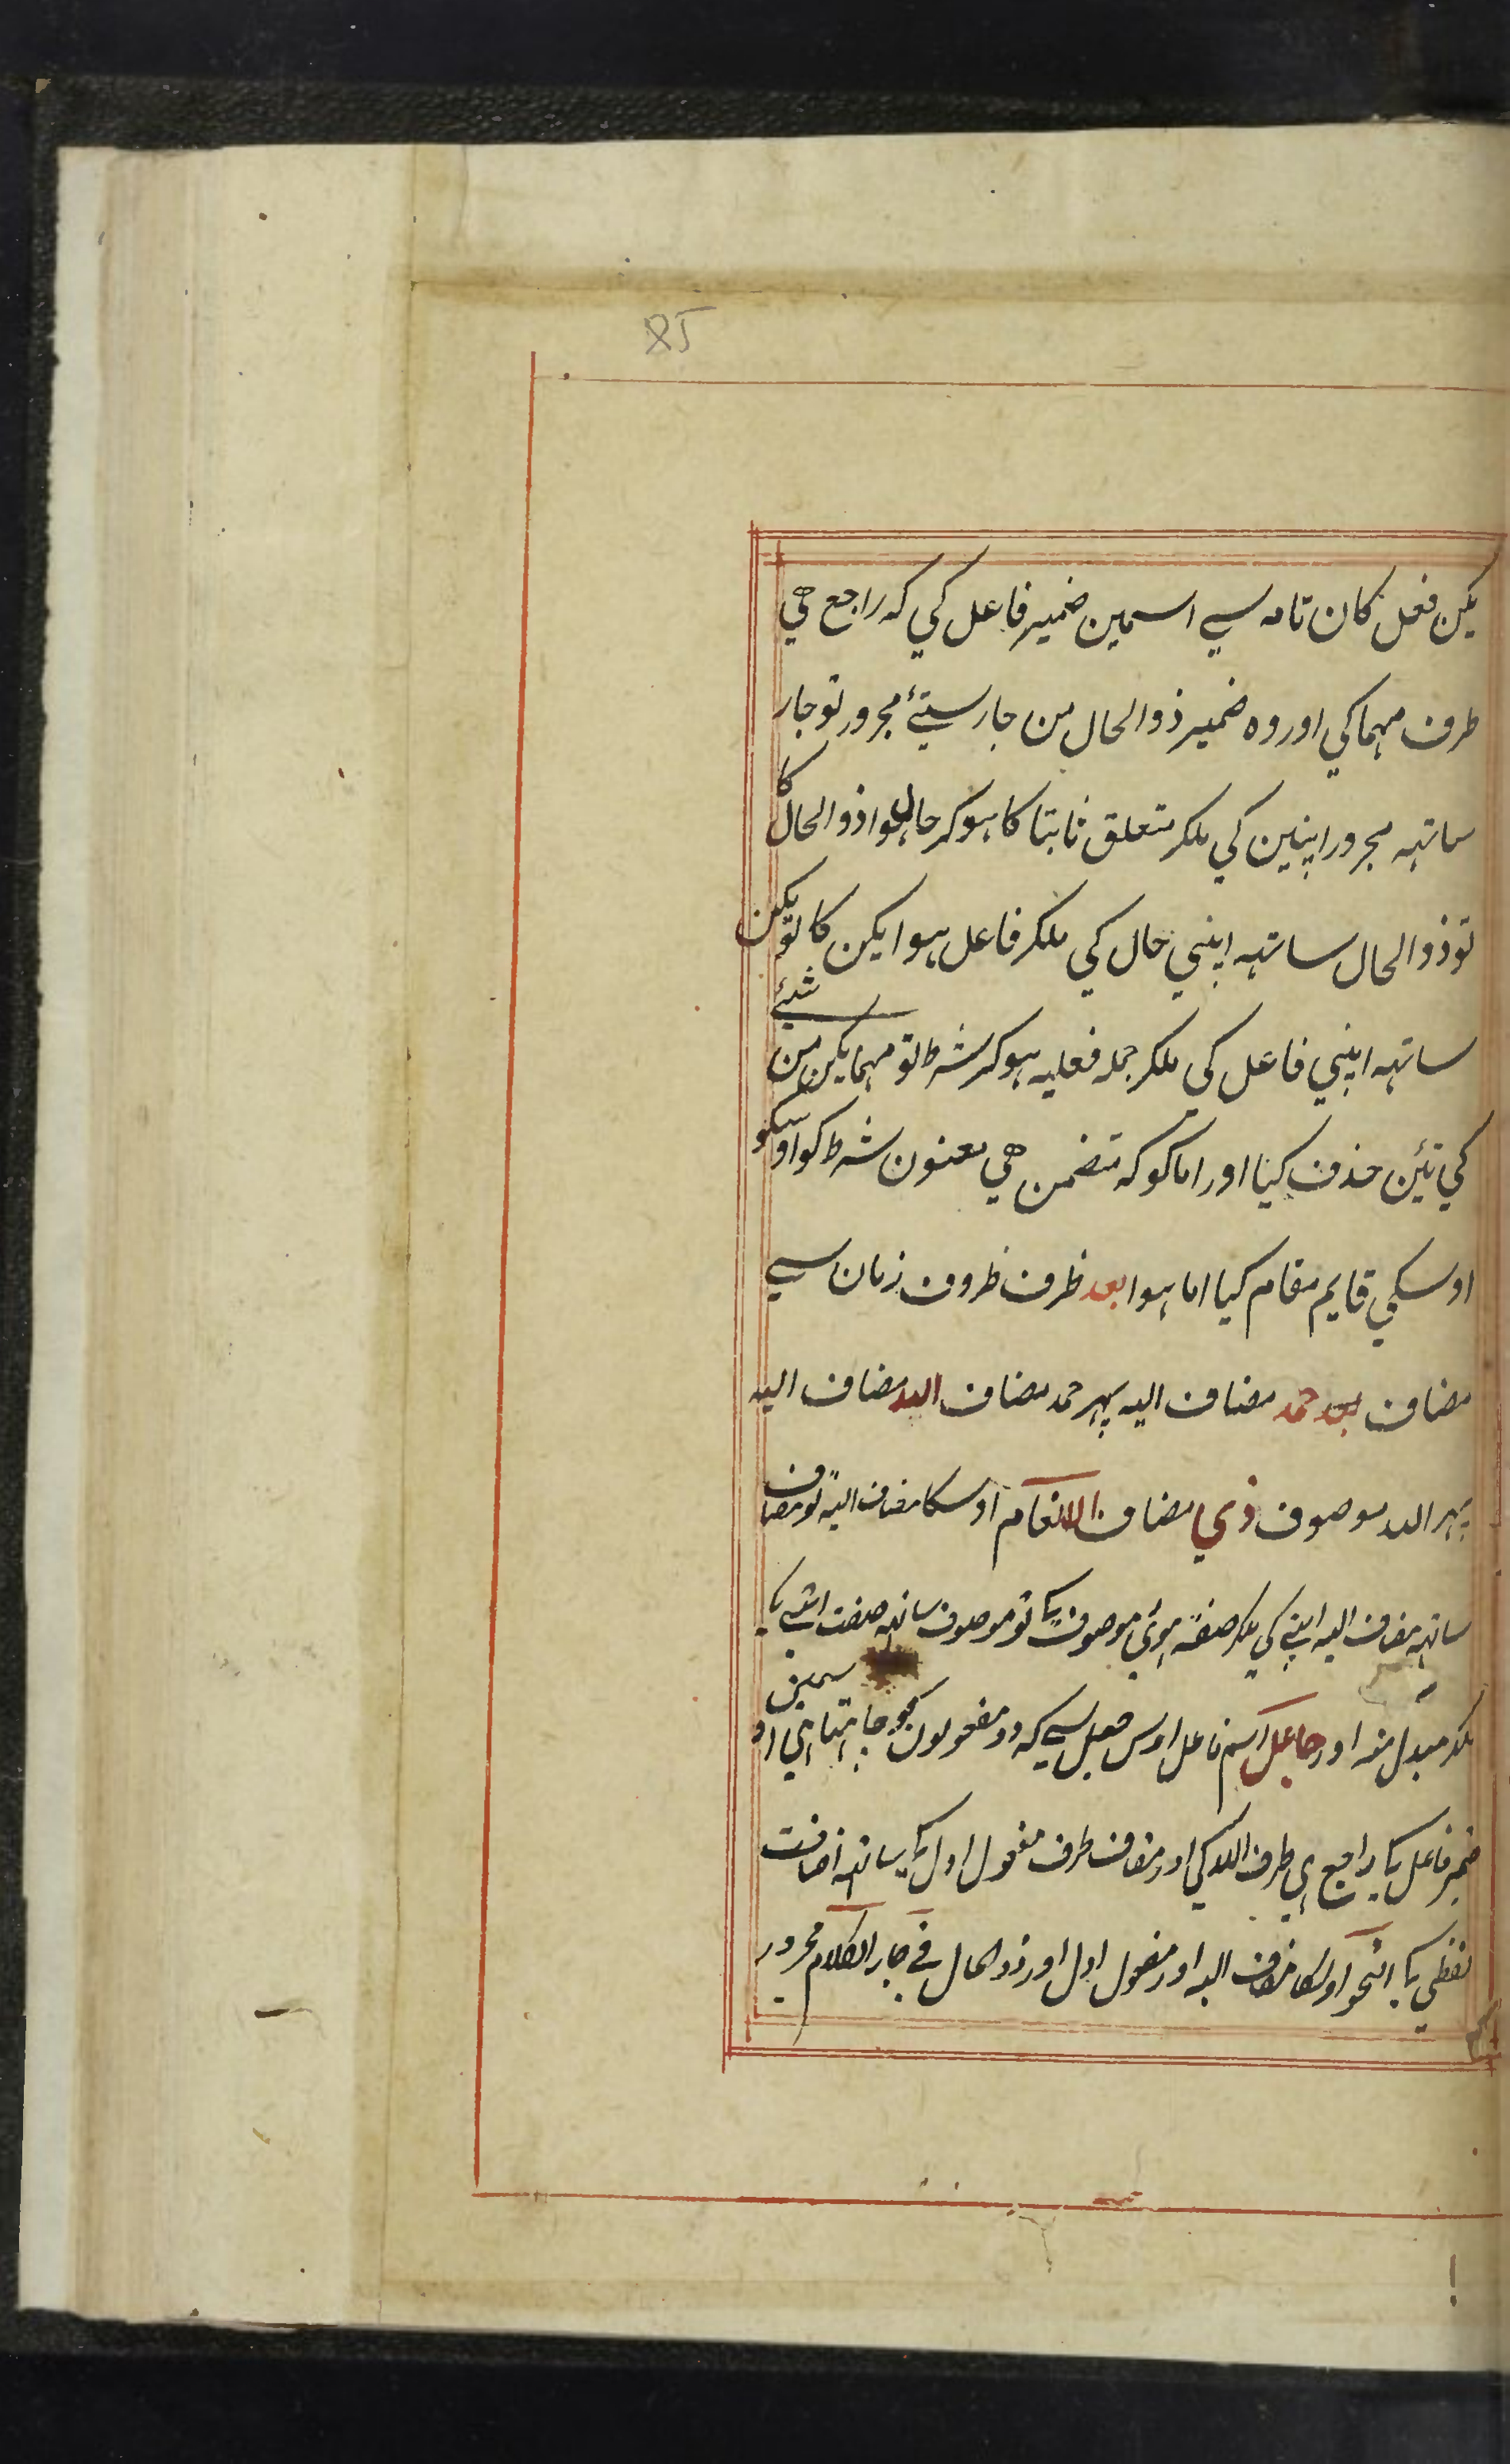 85
یکن فعل کان تامہ سے اسمین ضمیر فاعل کی کہ راجع ھی
طرف مہما کی اور وہ ضمیر ذو الحال من جار شیئ مجرور تو جار
ساتہہ مجرور اپنین کی ملکر متعلق ثابتا کا ہو کر حال ہوا ذو الحال کا
تو ذو الحال ساتہہ اپنی حال کی ملکر فاعل ہوا یکن کا تو یکن
ساتہہ اپنی فاعل کی ملکر جملہ فعلیہ ہوکر شرط تو مہما یکن من شیئ
کی تئین حذف کیا اور اما کو کہ متضمن ھی معنون شرط کو اوسکو
اوسکی قایم مقام کیا اما ہوا بعد ظرف ظروف زمان سے
مضاف بعد حمد مضاف الیہ پہر حمد مضاف اللہ مضاف الیہ
پہر اللہ موصوف ذی مضاف الانعام اوسکا مضاف الیہ تو مضاف
ساتہہ مضاف الیہ اپنے کی ملکر صفۃ ہوئی موصوف کا تو موصوف ساتہہ صفت اپنے کا
ملکر مبدل منہ اور جاعل اسم فاعل اوس جعل سے کہ دو مفعولون کو چاہتا ہی اوسمین
ضمیر فاعل کا راجع ہی طرف اللہ کی اور مضاف طرف مفعول اول کا ساتہہ اضافت
لفظی کا النحو اوسکا مضاف الیہ اور مفعول اول اور ذو الحال فے جار الکلام مجرور